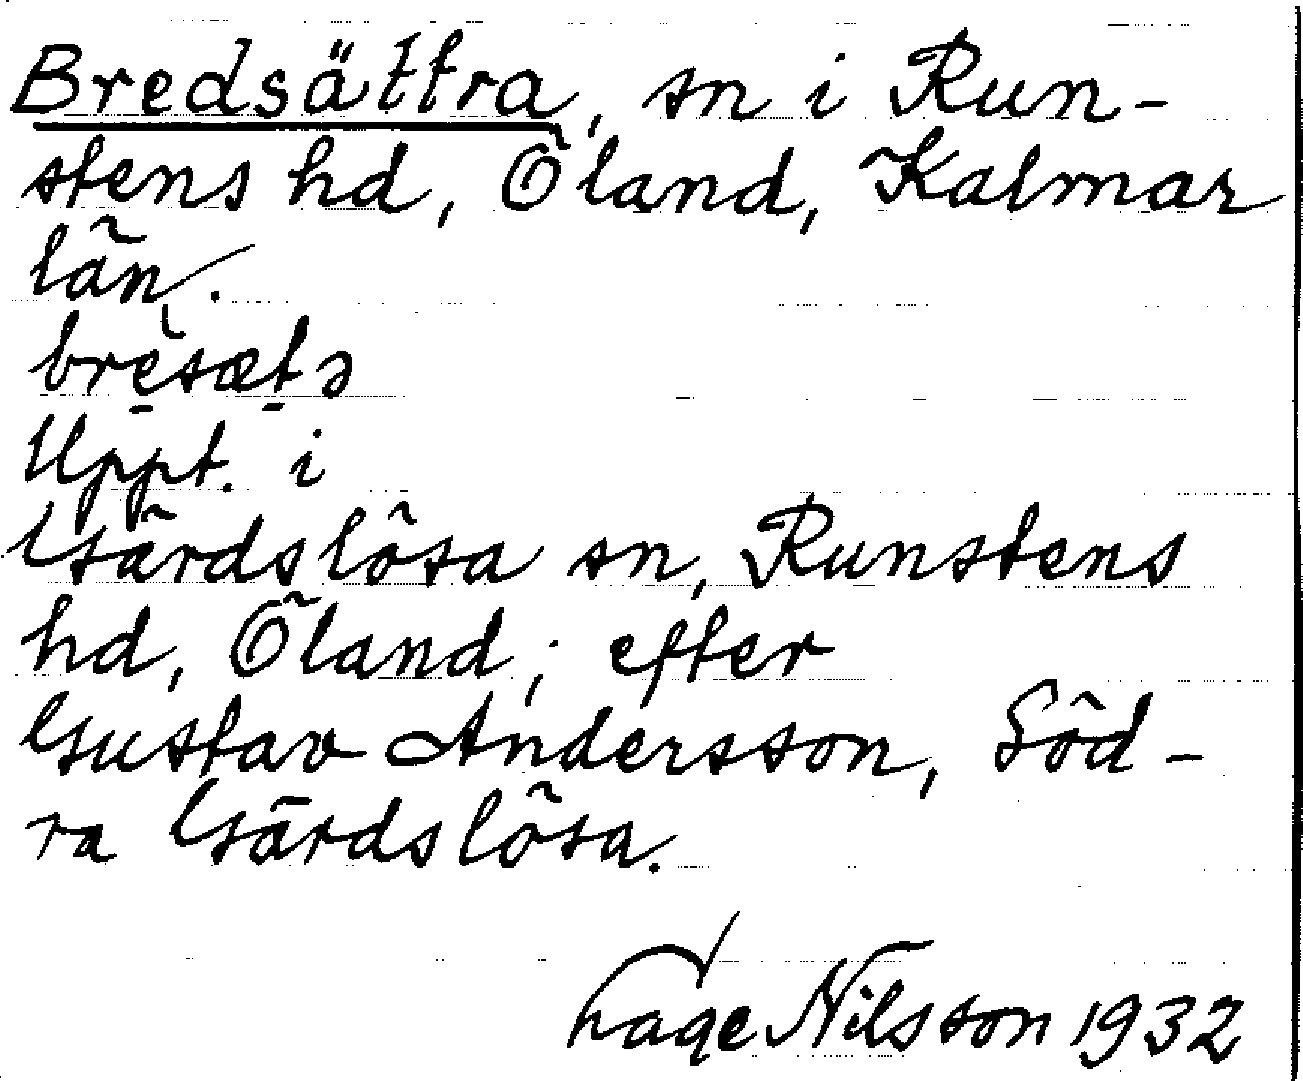 Bredsättra, sn i Run-
stens hd, Öland, Kalmar
län.
brèsætə
Uppt. i
Gärdslösa sn, Runstens
hd, Öland; efter
Gustav Andersson, Söd-
ra Gärdslösa.
Lage Nilsson 1932